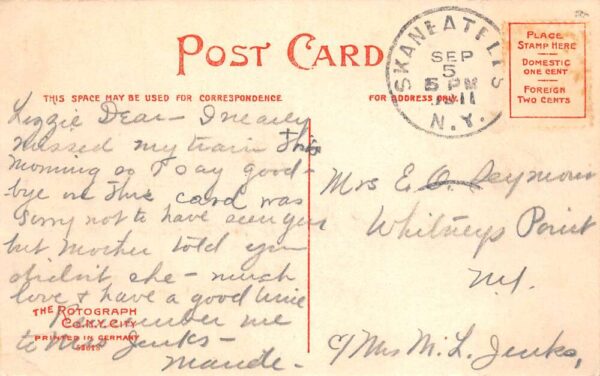 POST CARD
SKANEATELES
SEP
5
5 PM
1911
N.Y.
PLACE
STAMP HERE
DOMESTIC
ONE CENT
FOREIGN
TWO CENTS
THIS SPACE MAY BE USED FOR CORRESPONDENCE
FOR ADDRESS ONLY.
Lizzie Dear - I nearly
missed my train this
morning so I say good-
bye on this card was
sorry not to have seen you
but Mother told you
didn't she - much
love & have a good time
Remember me
to Mrs Jenks -
Maude -
THE ROTOGRAPH
CO. N.Y. CITY
PRINTED IN GERMANY
Mrs E. O. Seymour
Whitneys Point
N.Y.
c/ Mrs M. L. Jenks,